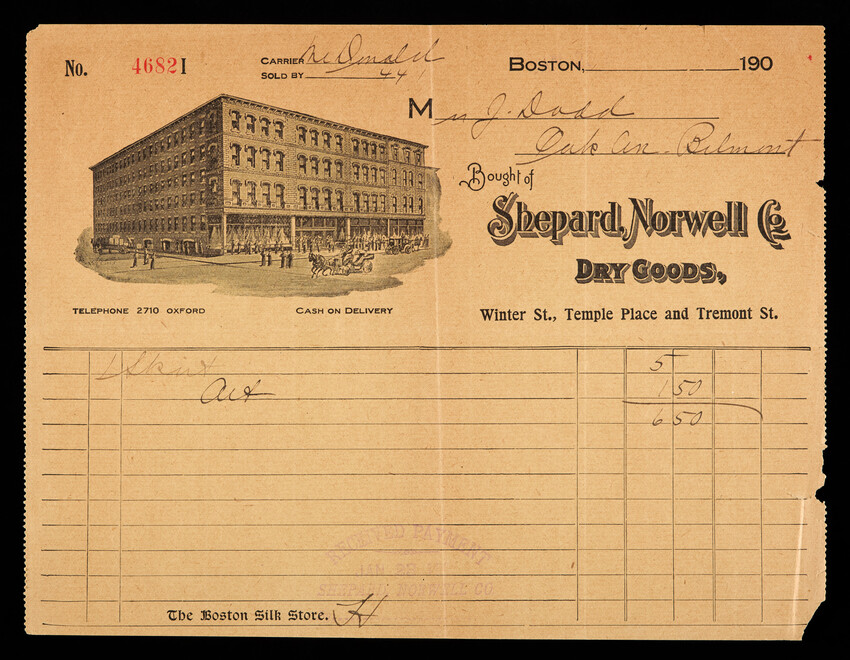 No. 4682I
CARRIER McDonald
SOLD BY 441
BOSTON, 190
Mrs J. Dodd
Oak Av. Belmont
Bought of
Shepard, Norwell Co
DRY GOODS.,
TELEPHONE 2710 OXFORD
CASH ON DELIVERY
Winter St., Temple Place and Tremont St.
1 Skirt 5
Act 1 50
6 50
RECEIVED PAYMENT
SHEPARD NORWELL CO
The Boston Silk Store. H